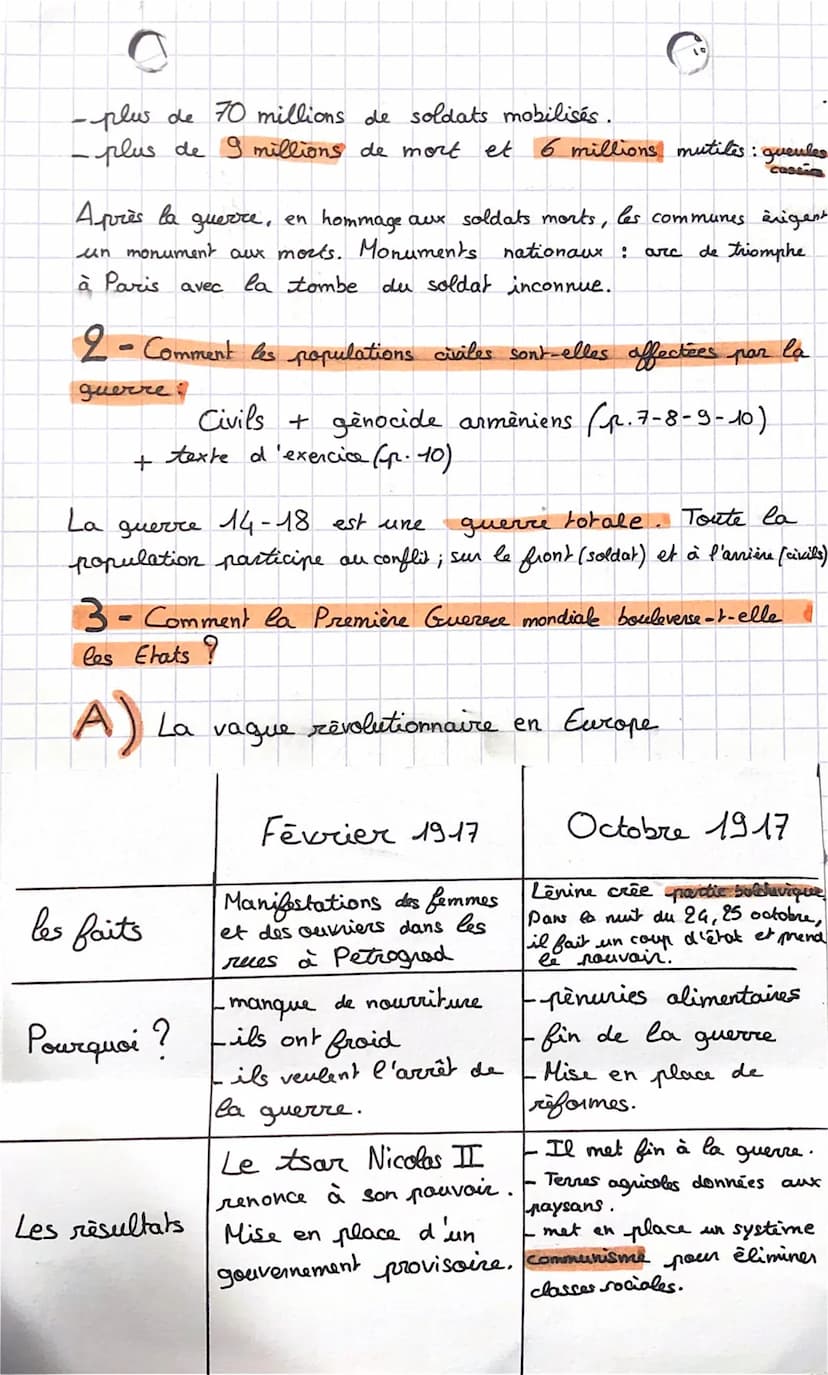 - plus de 70 millions de soldats mobilisés.
- plus de 9 millions de mort et 6 millions mutilés : gueules
cassées
Après la guerre, en hommage aux soldats morts, les communes érigent
un monument aux morts. Monuments nationaux : arc de triomphe
à Paris avec la tombe du soldat inconnue.
2 - Comment les populations civiles sont-elles affectées par la
guerre :
Civils + génocide arméniens (p.7-8-9-10)
+ texte d'exercice (p.10)
La guerre 14-18 est une guerre totale. Toute la
population participe au conflit ; sur le front (soldat) et à l'arrière (civils)
3 - Comment la Première Guerre mondiale bouleverse-t-elle
les Etats ?
A) La vague révolutionnaire en Europe
Février 1917
Octobre 1917
les faits
Manifestations des femmes
et des ouvriers dans les
rues à Petrograd
Lénine crée partie bolchevique
Dans la nuit du 24, 25 octobre,
il fait un coup d'état et prend
le pouvoir.
Pourquoi ?
- manque de nourriture
- ils ont froid
- ils veulent l'arrêt de
la guerre.
- pénuries alimentaires
- fin de la guerre
- Mise en place de
réformes.
Les résultats
Le tsar Nicolas II
renonce à son pouvoir.
Mise en place d'un
gouvernement provisoire.
- Il met fin à la guerre.
- Terres agricoles données aux
paysans.
- met en place un système
communisme pour éliminer
classes sociales.